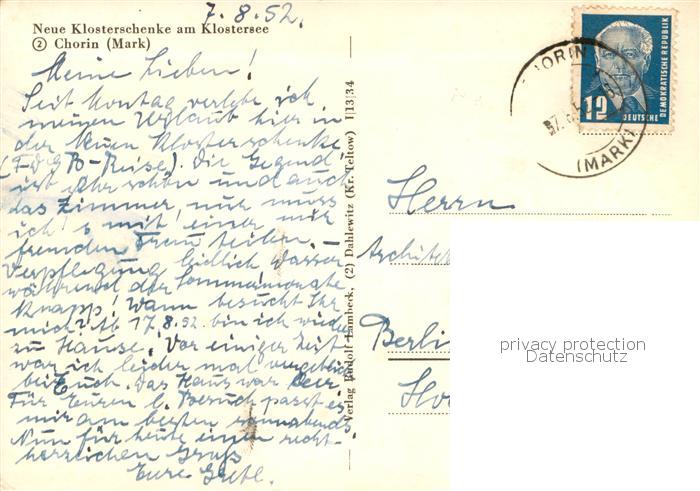 7.8.52.
Neue Klosterschenke am Klostersee
② Chorin (Mark)
Meine Lieben!
Seit Montag verlebe ich
meinen Urlaub hier in
der Neuen Klosterschenke
(FDGB-Reise). Die Gegend
ist sehr schön und auch
das Zimmer, nur muss
ich's mit einer mir
fremden Frau teilen. –
Verpflegung leidlich, Wasser
während der Sommermonate
knapp! Wann besucht Ihr
mich? Ab 17.8.52 bin ich wieder
zu Hause. Vor einiger Zeit
war ich leider mal vergeblich
bei Euch. Das Haus war leer.
Für Euren l. Besuch passt es
mir am besten sonnabends.
Nun für heute einen recht
herzlichen Gruß
Eure Gretl.
Verlag Rudolf Lambeck, (2) Dahlewitz (Kr. Teltow) I/13/34
CHORIN
(MARK)
12
DEUTSCHE
DEMOKRATISCHE REPUBLIK
Herrn
Archit
Berli
privacy protection
Datenschutz